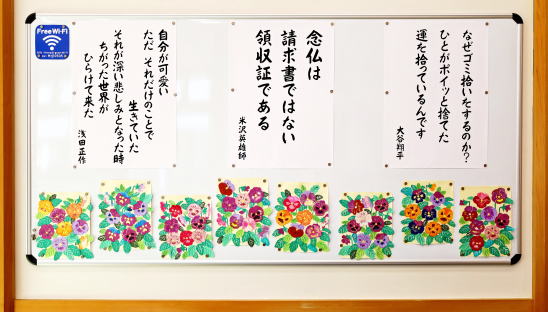 なぜゴミ拾いをするのか?
ひとがポイッと捨てた
運を拾っているんです
大谷翔平
念仏は
請求書ではない
領収証である
米沢英雄師
自分が可愛い
ただ それだけのことで
生きていた
それが深い悲しみとなった時
ちがった世界が
ひらけて来た
浅田正作
Free Wi-Fi